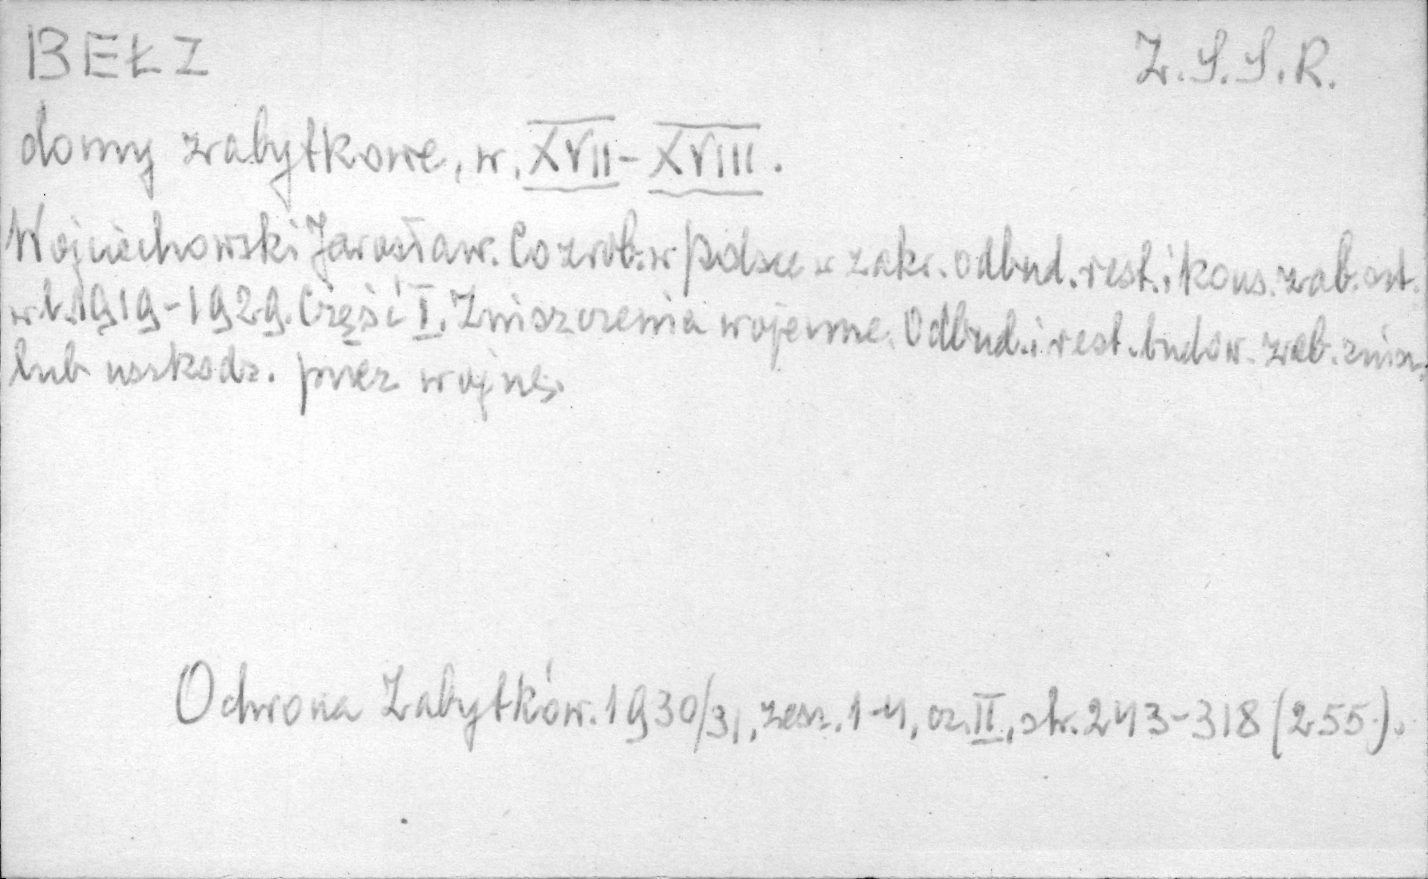 BEŁZ Z.S.S.R.
domy zabytkowe, w. XVII-XVIII.
Wojciechowski Jarosław. Co zrob. w Polsce w zakr. odbud. rest. i kons. zab. szt.
w l. 1919-1929. Część I. Zniszczenia wojenne. Odbud. i rest. budow. zab. znisz.
lub uszkodz. przez wojnę.
Ochrona Zabytków. 1930/31, zesz. 1-4, cz. II, str. 243-318 (255).